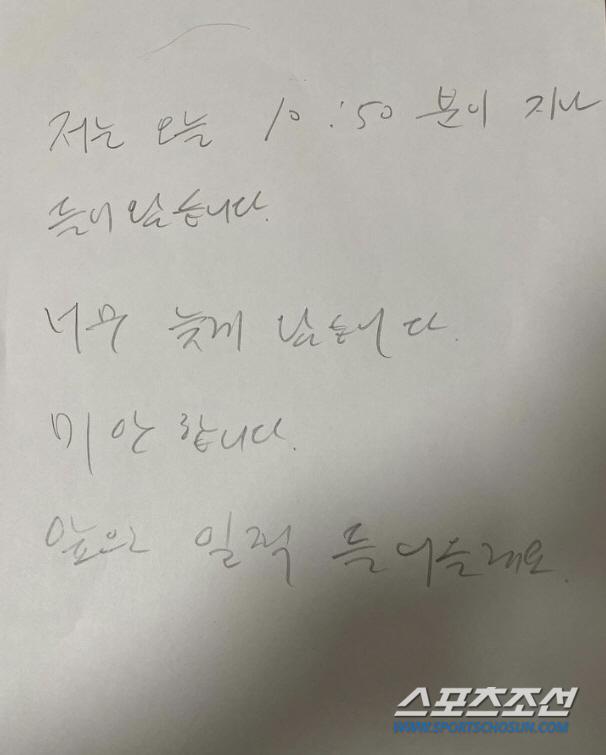 저는 오늘 10:50 분이 지나
들어 왔습니다.
너무 늦게 났습니다.
미안 합니다.
앞으로 일찍 들어올래요.
스포츠조선
WWW.SPORTSCHOSUN.COM